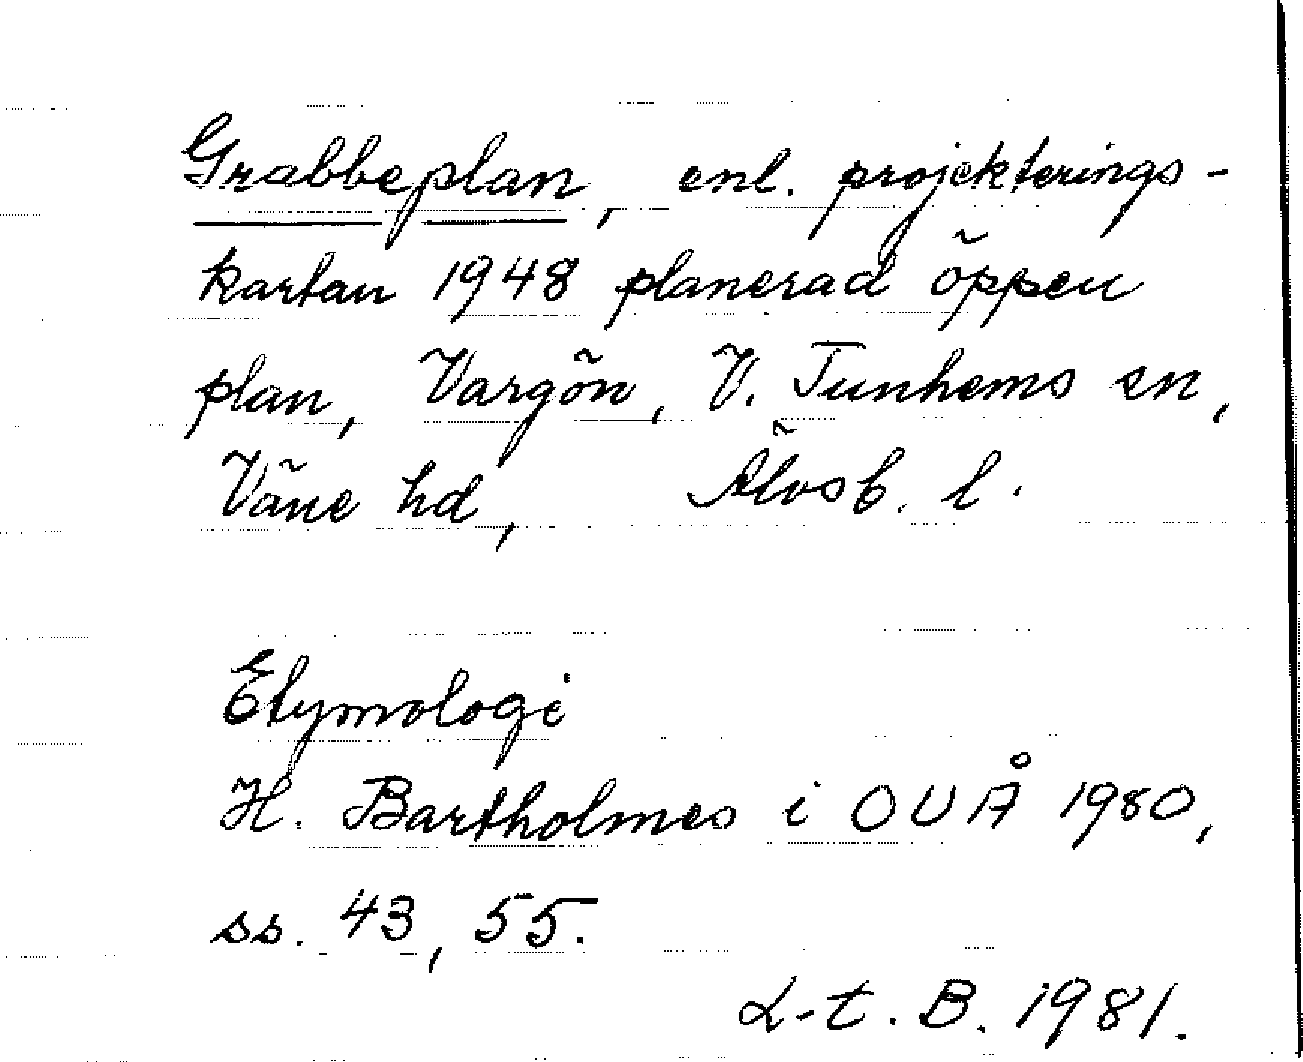 Grabbeplan, enl. projekterings-
kartan 1948 planerad öppen
plan, Vargön, V. Tunhems sn,
Väne hd, Älvsb. l.
Etymologi
H. Bartholmes i OUÅ 1980,
ss. 43, 55.
L-t. B. 1981.